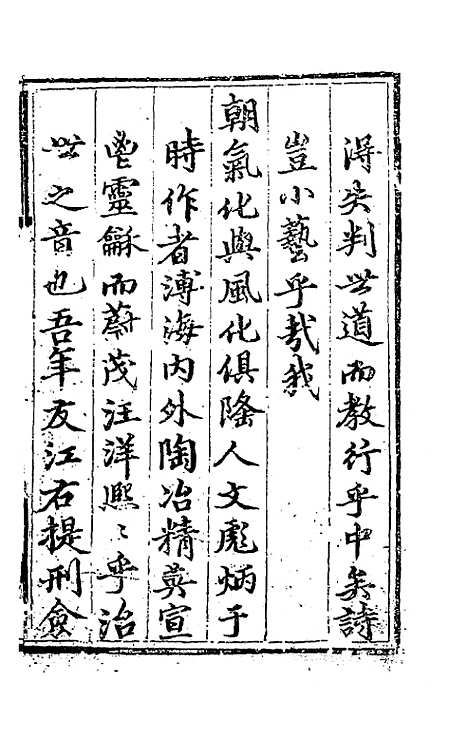 得失判世道而教行乎中矣詩
豈小藝乎哉我
朝氣化與風化俱隆人文彪炳于
時作者溥海内外陶冶精英宣
鬯靈龢而蔚茂汪洋熈〻乎治
世之音也吾年友江右提刑僉